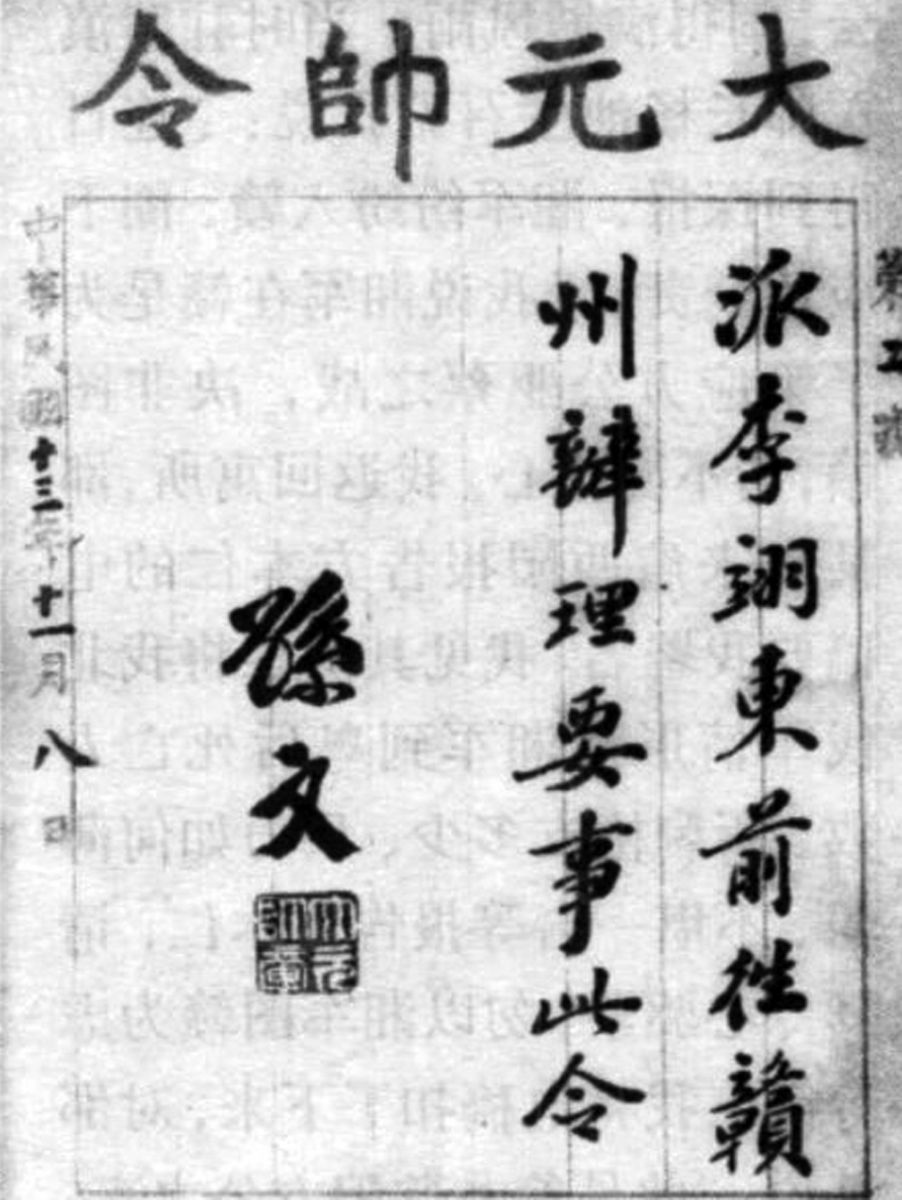 大元帥令
派李翊東前往贛
州辦理要事此令
孫文
大元帥章
中華民國十三年十一月八日